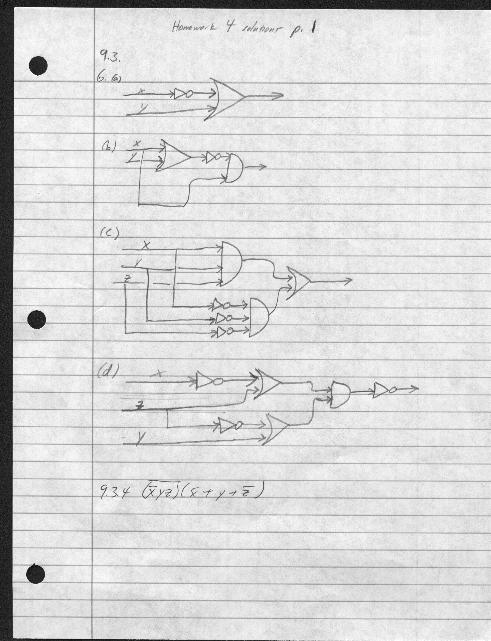 Homework 4 solutions p. 1
9.3.
6. a)
x
y
(b) x
y
(c)
x
y
z
(d) x
z
y
9.3.4 (x̅yz)‾(x̅ + y + z̅)